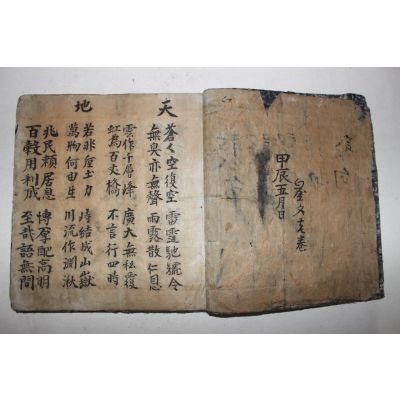 甲辰五月日
天
蒼々空復空 雷霆馳號令
無臭亦無聲 雨露散仁恩
雲作千層峰 廣大無私覆
虹為百丈橋 不言行四時
地
若非 土力 峙結成山嶽
萬物何由生 川流作淵湫
兆民賴居息 博厚配高明
百穀用利成 至哉語無間